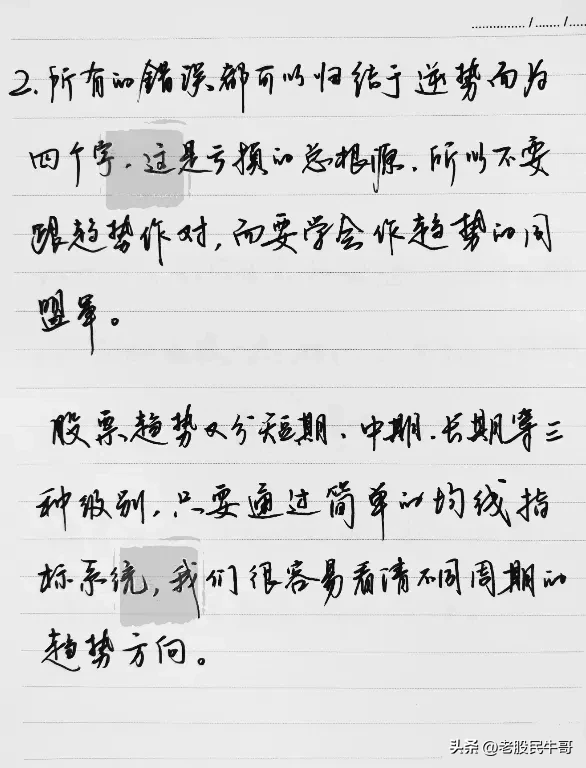 2.所有的错误都可以归结于逆势而为
四个字.这是亏损的总根源.所以不要
跟趋势作对,而要学会作趋势的同
盟军。
股票趋势又分短期、中期.长期等三
种级别,只要通过简单的均线指
标系统,我们很容易看清不同周期的
趋势方向。
头条 @老股民牛哥